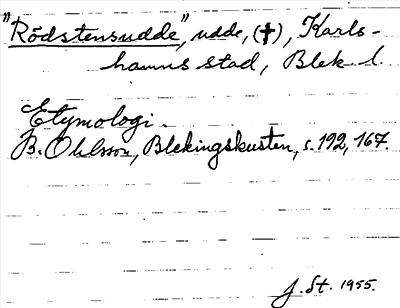 "Rödstensudde", udde, (†), Karls-
hamns stad, Blek. l.
Etymologi.
B. Ohlsson, Blekingskusten, s. 192, 167.
J. St. 1955.